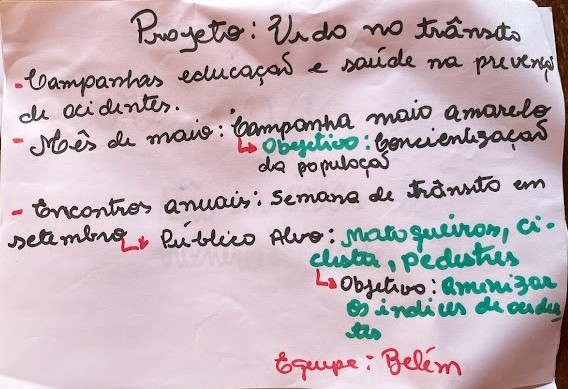 Projeto: Vida no trânsito
- Campanhas educação e saúde na prevenção
de acidentes.
- Mês de maio: Campanha maio amarelo
Objetivo: Concientização
da população
- Encontros anuais: Semana de trânsito em
setembro Público Alvo: Motoqueiros, ci-
clista, pedestres
Objetivo: Aminizar
os indices de acide
tes
Equipe: Belém